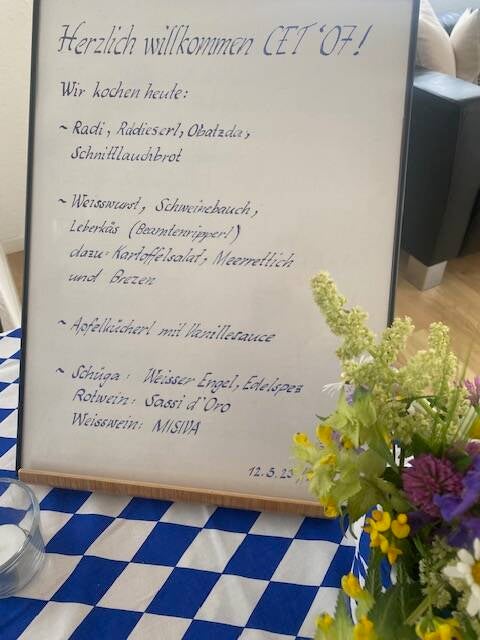 Herzlich willkommen CET '07!
Wir kochen heute:
~ Radi, Radieserl, Obatzda,
Schnittlauchbrot
~ Weisswurst, Schweinebauch,
Leberkäs (Beamtenripperl)
dazu: Kartoffelsalat, Meerrettich
und Brezen
~ Apfelkücherl mit Vanillesauce
~ Schüga: Weisser Engel, Edelspez
Rotwein: Sassi d'Oro
Weisswein:
12.5.23